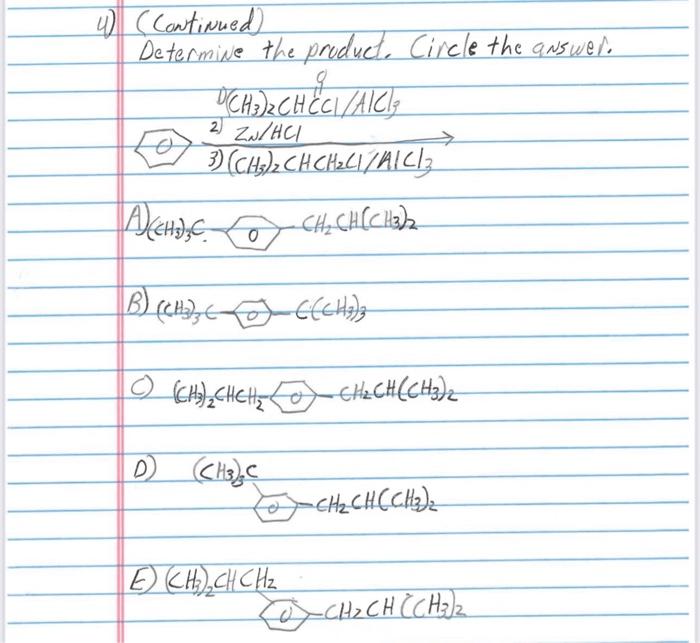 4) (Continued)
Determine the product. Circle the answer.
O
1)(CH3)2CHCCl/AlCl3
2) Zn/HCl
3)(CH3)2CHCH2Cl/AlCl3
A)(CH3)3C- -CH2CH(CH3)2
B) (CH3)3C- -C(CH3)3
C) (CH3)2CHCH2- -CH2CH(CH3)2
D) (CH3)3C
-CH2CH(CH3)2
E) (CH3)2CHCH2
-CH2CH(CH3)2